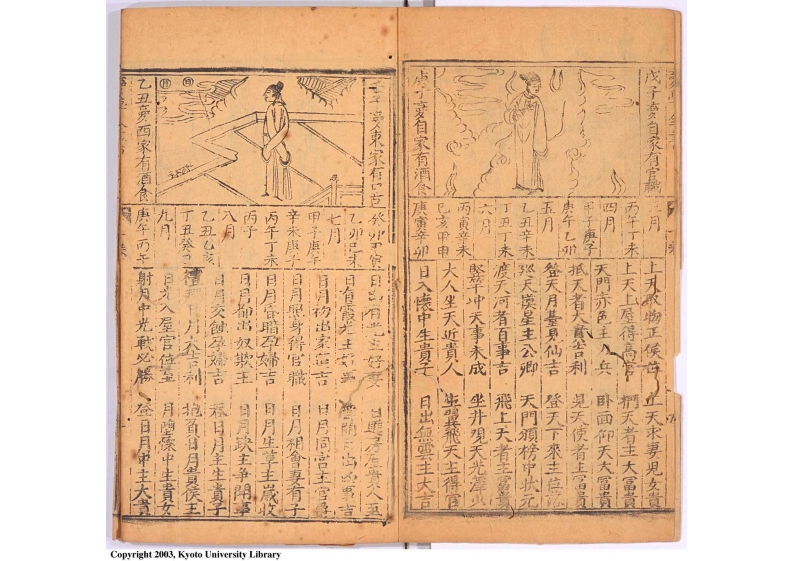 戊子夢自家有官職
庚子夢自家有酒食
三月
丙午丁未
四月
甲子庚子
庚午乙卯
五月
乙丑辛未
丁丑丁未
六月
丙寅辛未
己亥甲申
庚寅辛卯
上天取物正侯位 上天求妻兒女貴
上天上屋得高官 天者主大富貴
天門赤色主人兵 卧面仰天大富貴
抵天者大吉利 見天使者主富貴
登天月臺身仙吉 登天下來主位
天漢星主公卿 天門頒榜中狀元
渡天河者百事吉 飛上天者主富貴
冲天事未成 坐井現天光
大人坐天近貴人 生翼飛天主得官
日入懷中生貴子 日出無雲主大吉
夢東家有口舌
日
月
乙丑夢西家有酒食
乙卯己未
七月
甲子庚午
辛未庚子
丙午丁未
丙子
八月
乙丑乙亥
丁丑癸
九月
庚午丙午
日出有光主好妻 日 貴人
日有霞光主 雲開日出凶事吉
日月初出家庄吉 日月同宮主官爵
日月照身得官職 日月相會妻有子
日月昏暗孕婦吉 日月生草主歲收
日月都出奴欺主 日月政主爭開事
日月交蝕孕婦吉 吞日月主生貴子
日月大吉利 抱負日月貴侯王
日光入屋官位至 月墮懷中生貴女
射月中光戰必勝 登日月中主大貴
Copyright 2003, Kyoto University Library